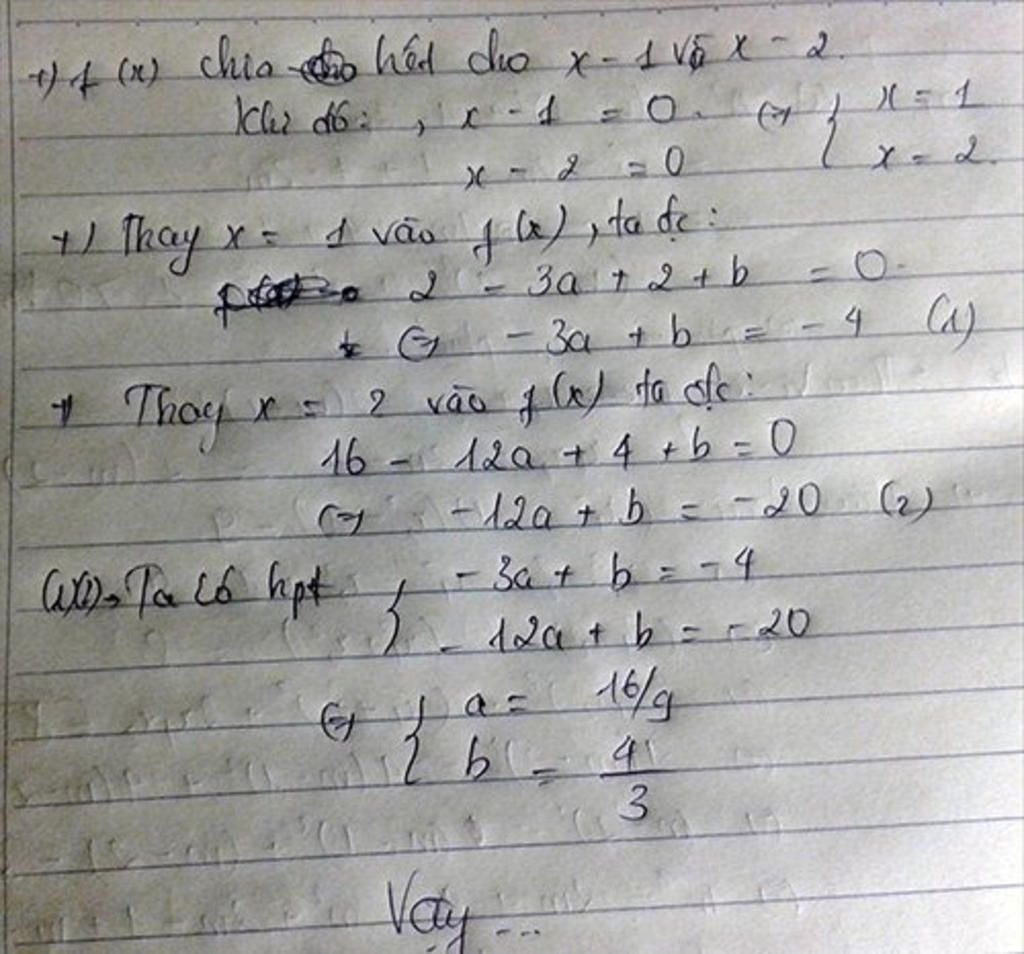 +) f(x) chia hết cho x - 1 và x - 2.
Khi đó: , x - 1 = 0. <=> { x = 1
x - 2 = 0 x = 2.
+) Thay x = 1 vào f(x), ta đc:
2 - 3a + 2 + b = 0.
<=> - 3a + b = - 4 (1)
+) Thay x = 2 vào f(x) ta đc:
16 - 12a + 4 + b = 0
<=> - 12a + b = - 20 (2)
(1)(2) → Ta có hpt { - 3a + b = - 4
- 12a + b = - 20
<=> { a = 16/9
b = 4/3
Vậy ...